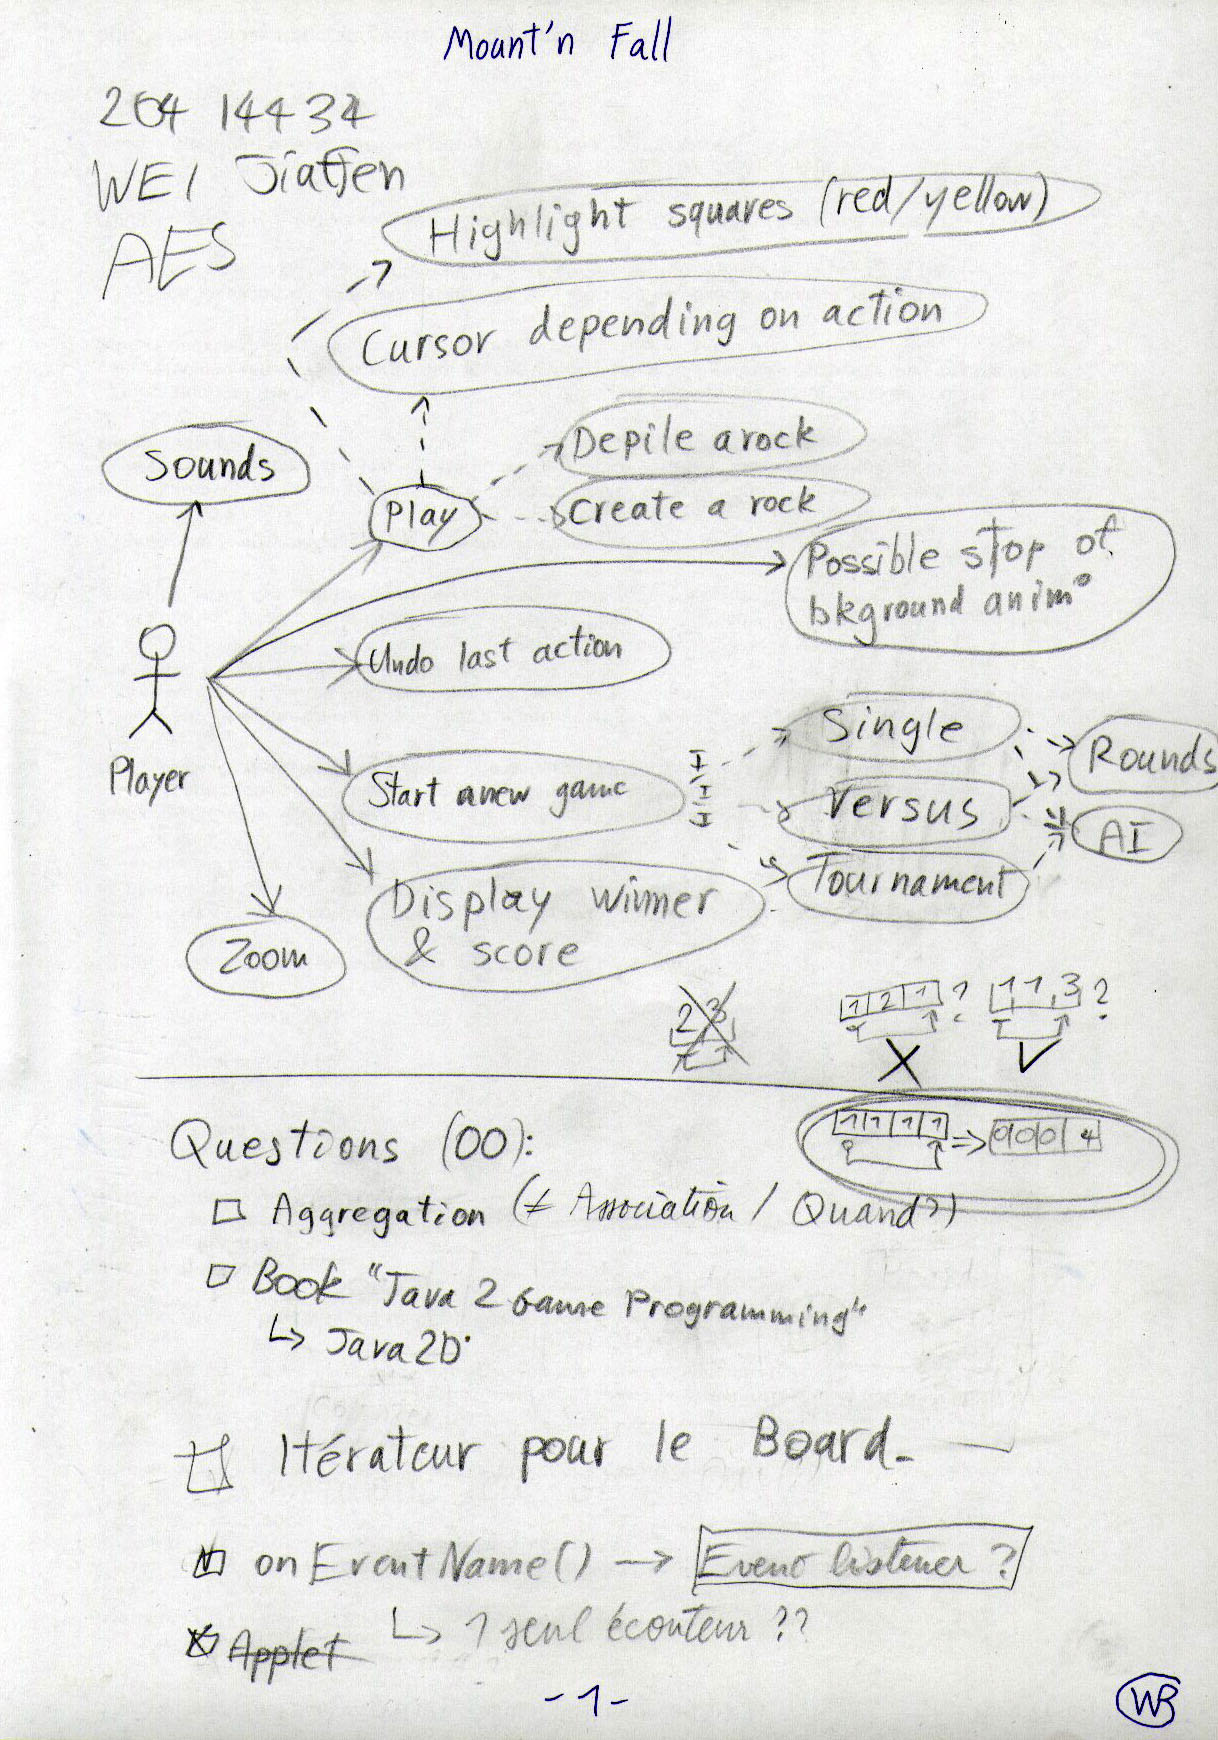 Mount'n Fall
WEI
AES
Highlight squares (red/yellow)
Cursor depending on action
Sounds
Depile a rock
Play
Create a rock
Possible stop of
bkground anim°
Undo last action
Player
Single
Start a new game
Rounds
Versus
AI
Tournament
Display winner
& score
Zoom
2 3
1 2 1 ?
1 1, 3 ?
1 1 1 1 => 0 0 0 4
Questions (OO):
Aggregation (≠ Association / Quand?)
Book "Java 2 Game Programming"
↳ Java 2D
Itérateur pour le Board
onEventName() → Event listener ?
↳ 1 seul écouteur ??
Applet
-1-
WB